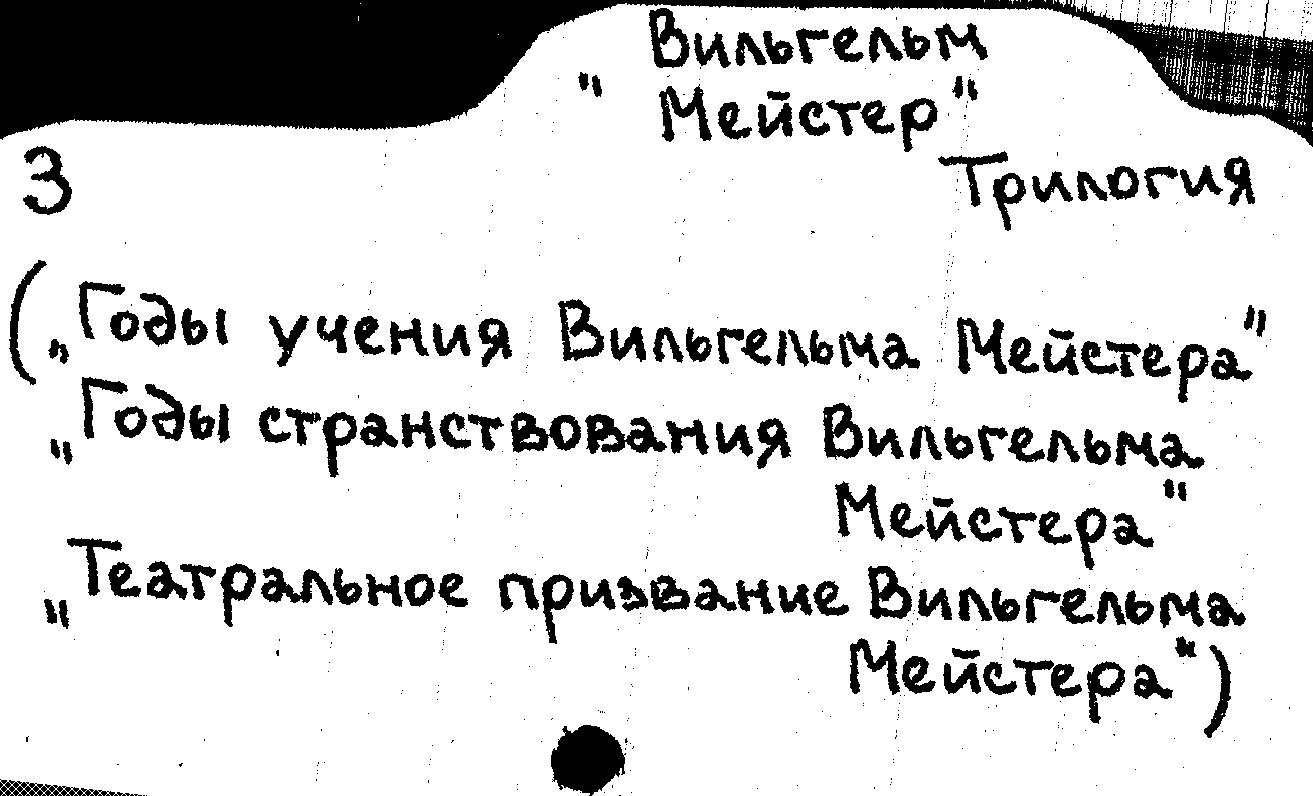 Вильгельм
" Мейстер"
3
Трилогия
(„Годы учения Вильгельма Мейстера"
"Годы странствования Вильгельма
Мейстера"
"Театральное призвание Вильгельма
Мейстера")